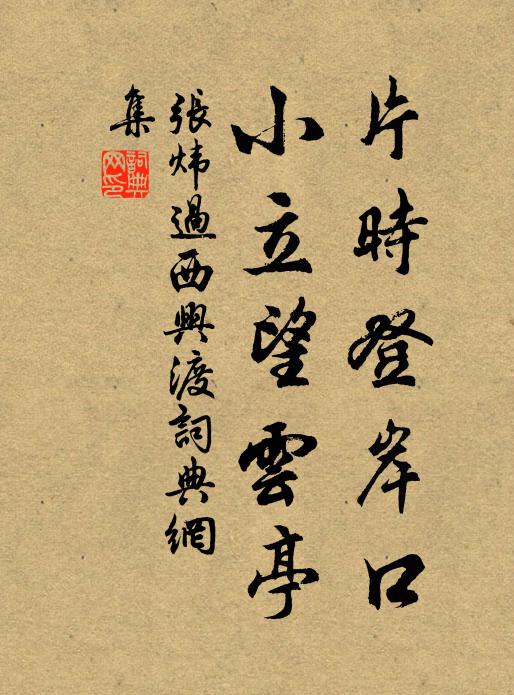 片時登岸口
小立望雲亭
張煒過西興渡詞典網
集
詞典
網印